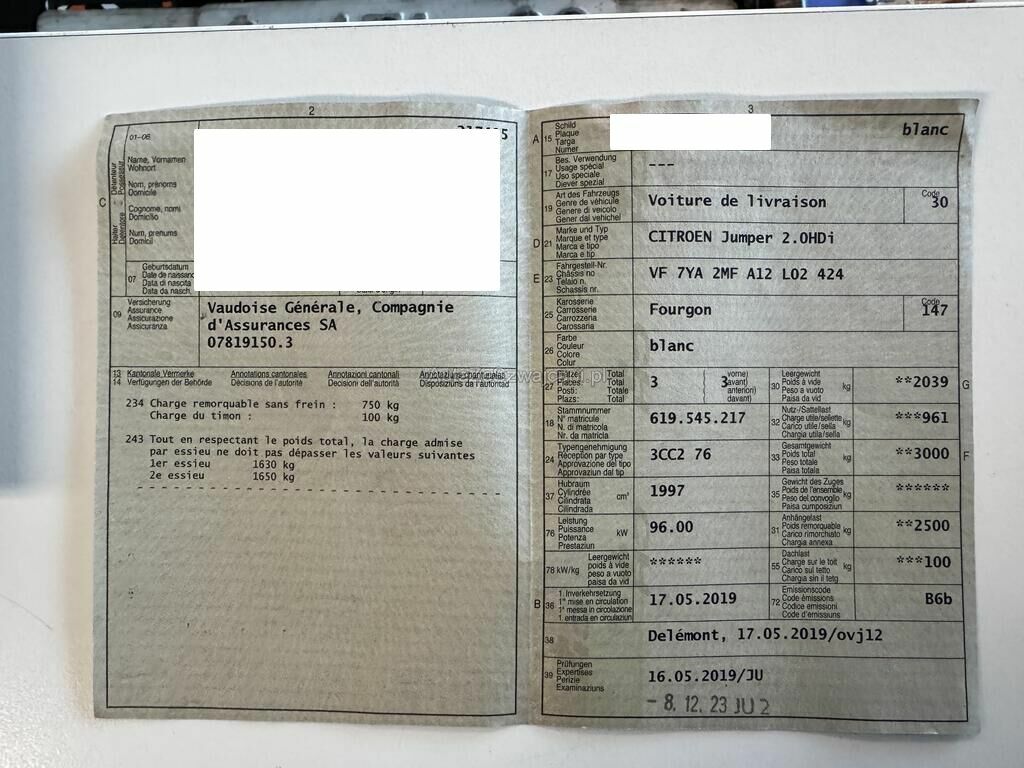 2
01-06
Name, Vornamen
Wohnort
Nom, prénoms
Domicile
Cognome, nomi
Domicilio
Num, prenums
Domicil
C
07
Geburtsdatum
Date de naissance
Data di nascita
Data da nasch.
09
Versicherung
Assurance
Assicurazione
Assicuranza
Vaudoise Générale, Compagnie
d'Assurances SA
07819150.3
13 Kantonale Vermerke Annotations cantonales Annotazioni cantonali Annotaziuns chantunalas
14 Verfügungen der Behörde Décisions de l'autorité Decisioni dell'autorità Disposiziuns da l'autoritad
234 Charge remorquable sans frein : 750 kg
Charge du timon : 100 kg
243 Tout en respectant le poids total, la charge admise
par essieu ne doit pas dépasser les valeurs suivantes
1er essieu 1630 kg
2e essieu 1650 kg
3
A 15
Schild
Plaque
Targa
Numer
blanc
17
Bes. Verwendung
Usage spécial
Uso speciale
Diever spezial
---
19
Art des Fahrzeugs
Genre de véhicule
Genere di veicolo
Gener dal vehichel
Voiture de livraison
Code
30
D 21
Marke und Typ
Marque et type
Marca e tipo
Marca e tip
CITROEN Jumper 2.0HDi
E 23
Fahrgestell-Nr.
Châssis no
Telaio n.
Schassis nr.
VF 7YA 2MF A12 L02 424
25
Karosserie
Carrosserie
Carrozzeria
Carossaria
Fourgon
Code
147
26
Farbe
Couleur
Colore
Colur
blanc
27
Plätze: Total
Places: Total
Posti: Totale
Plazs: Total
3 ( 3
vorne)
avant)
anteriori)
davant)
30
Leergewicht
Poids à vide
Peso a vuoto
Paisa da vid
kg
**2039
G
18
Stammnummer
N° matricule
N. di matricola
Nr. da matricla
619.545.217
32
Nutz-/Sattellast
Charge utile/sellette
Carico utile/sella
Chargia utila/sella
kg
***961
24
Typengenehmigung
Réception par type
Approvazione del tipo
Approvaziun dal tip
3CC2 76
33
Gesamtgewicht
Poids total
Peso totale
Paisa totala
kg
**3000
F
37
Hubraum
Cylindrée
Cilindrata
Cilindrada
cm³
1997
35
Gewicht des Zuges
Poids de l'ensemble
Peso del convoglio
Paisa cumposiziun
kg
******
76
Leistung
Puissance
Potenza
Prestaziun
kW
96.00
31
Anhängelast
Poids remorquable
Carico rimorchiato
Chargia annexa
kg
**2500
78 kW/kg
Leergewicht
poids à vide
peso a vuoto
paisa da vid
******
55
Dachlast
Charge sur le toit
Carico sul tetto
Chargia sin il tetg
kg
***100
B 36
1. Inverkehrsetzung
1re mise en circulation
1a messa in circolazione
1. entrada en circulaziun
17.05.2019
72
Emissionscode
Code émissions
Codice emissioni
Code d'emissiuns
B6b
38
Delémont, 17.05.2019/ovj12
39
Prüfungen
Expertises
Perizie
Examinaziuns
16.05.2019/JU
- 8. 12. 23 JU 2